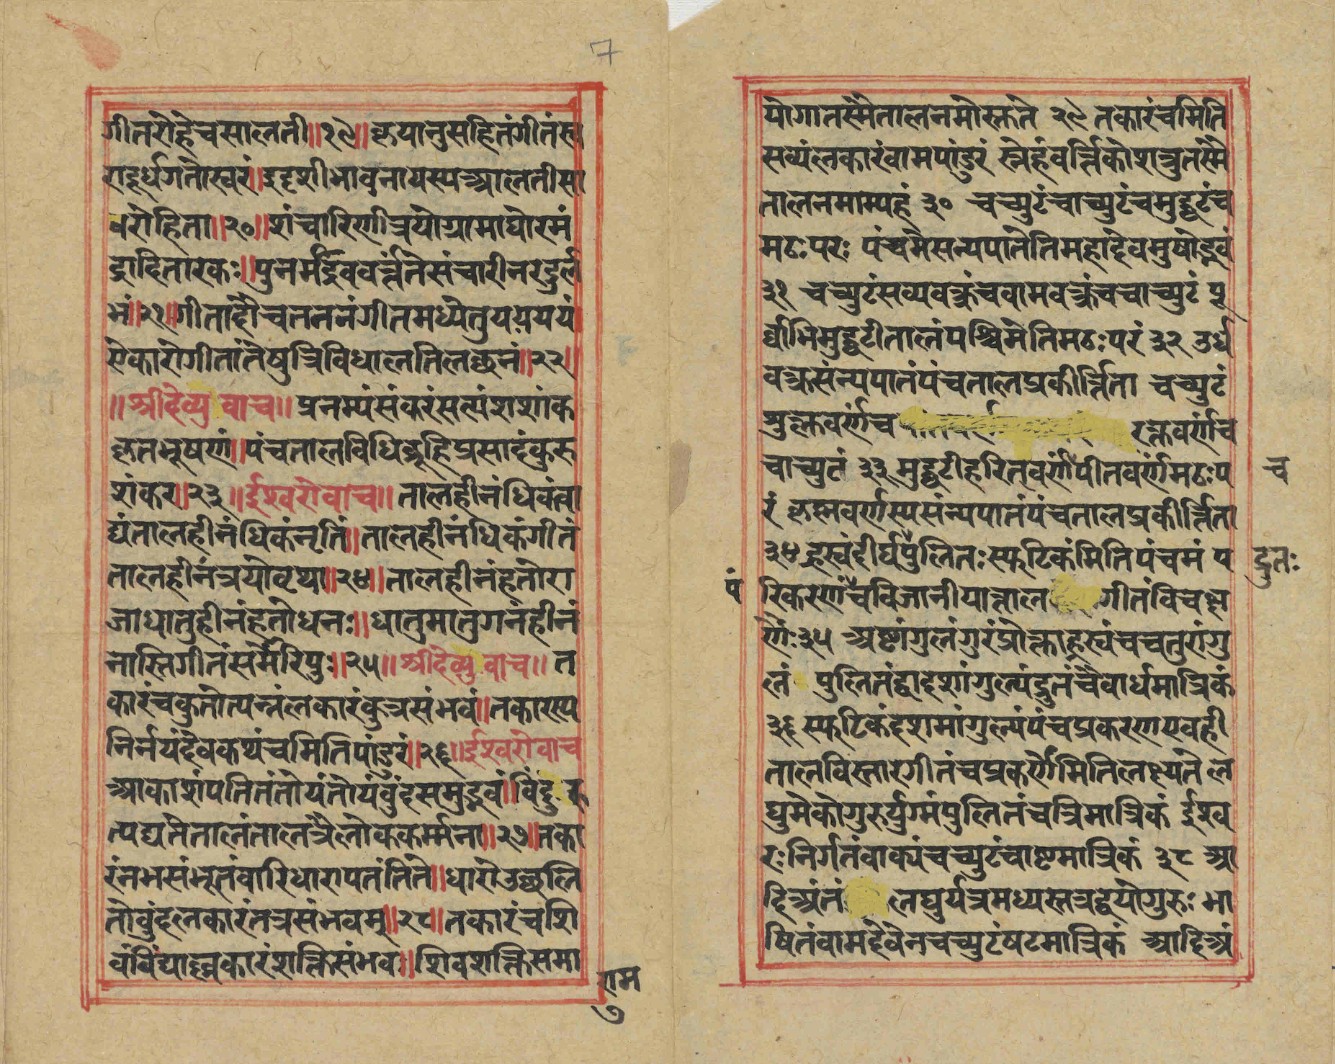 7
गीतरोहेचसालती॥१९॥क्रयानुसहितंगीतंस्व
रादूर्धगतोस्वरं।इदृशीभावनायस्यआलतीसा
वरोहिता॥२०॥शंचारिणीत्रयोग्रामाघोरमं
द्रादितारकः॥पुनर्मद्रिववर्न्नंतेसंचारीनरदुर्ल
भं॥२१॥गीतादौचतननंगीतमध्येतुययययं
सेकारोगीतांतेषुत्रिविधालतिलछनं॥२२॥
॥श्रीदेव्युवाच॥प्रनम्यंसंकरंसत्यंशशांक
कृतभूषणं॥पंचतालविधिब्रूहिप्रसादंकुरु
शंकर॥२३॥ईश्वरोवाच॥तालहीनंधिकंवा
द्यंतालहीनंधिकंनृतिं॥तालहीनंधिकंगीतं
तालहीनंत्रयोवृथा॥२४॥तालहीनंहतोरा
जाधातुहीनंहतोधनः॥धातुमातुगनंहीनं
नास्तिगीतंसमंरिपुः॥२५॥श्रीदेव्युवाच॥त
कारंचकुतोत्पन्नंलकारंकुत्रसंभवं॥तकारस्य
निर्नयंदेवकथंचमितिपांडुरं॥२६॥ईश्वरोवाच
आकाशंपतितंतोयंतोयंवुंदसमुद्भवं॥विंदुरु
त्पद्यतेतालंतालत्रैलोककर्म्मना॥२७॥तका
रंनभसंभूतंवारिधारापतंतिते॥धारोउछलि
तोवुंदलकारंतत्रसंभवम्॥२८॥तकारंचशि
वंविद्याल्लकारंशक्तिसंभव॥शिवशक्तिसमा
राम
७
योगातस्मैतालनमोस्तुते २९ तकारंचमिति
सव्यंलकारंवामपांडुरं स्नेहंवर्त्तिकोशत्रुतस्मै
तालनमाम्यहं ३० चच्युटंचाच्युटंचमुद्धटंच
मठःपरः पंचमेसन्यपातेतिमहादेवमुषोद्भवं
३१ चच्युटंसव्यवक्त्रंचवामवक्त्रंचचाच्युटं पू
र्वाभिमुद्धटीतालंपश्चिमेतिमठःपरं ३२ उर्ध
वक्त्रसंन्यपातंपंचतालप्रकीर्त्तिता चच्युटं
शुक्लवर्णंच रक्तवर्णंच
चाच्युतं ३३ मुद्धटीहरितवर्णंपीतवर्णंमठःप
च
रं कृस्नवर्णस्यसंन्यपातंपंचतालप्रकीर्त्तिता
३४ ह्रस्वंदीर्घपुलितःस्फटिकंमितिपंचमं प
द्रुतः
पं
रिकरणंचैविजानीयात्ताल गीतंविचक्ष
णैः३५ अष्टांगुलंगुरंप्रोक्ताह्रस्वंचचतुरांगु
लं पुलितंद्वादशांगुल्यंद्रुतंचैवार्धमात्रिकं
३६ स्फटिकंदशमांगुल्यंपंचप्रकरणएवही
तालविस्तारगीतंचप्रकर्णमितिलक्ष्यते ल
घुमेकोगुरुर्युग्मंपुलितंचत्रिमात्रिकं ईश्व
रःनिर्गतंवाक्यंचच्युटंचाष्टमात्रिकं ३८ आ
दिअंतं लघुर्यत्रमध्यस्तत्रद्वयोगुरुः भा
षितंवामदेवेनचच्युटंषटमात्रिकं आदिअं